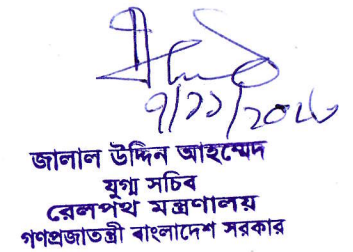 ৭/১১/২০১৬
জালাল উদ্দিন আহম্মেদ
যুগ্ম সচিব
রেলপথ মন্ত্রণালয়
গণপ্রজাতন্ত্রী বাংলাদেশ সরকার